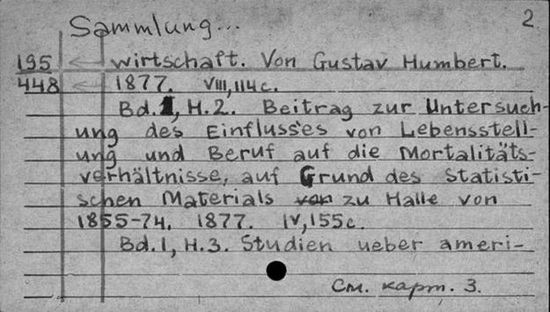 Sammlung... 2.
195 ← wirtschaft. Von Gustav Humbert.
448 ← 1877. VIII,114c.
Bd.1, H.2. Beitrag zur Untersuch-
ung des Einflusses von Lebensstell-
ung und Beruf auf die Mortalitäts-
verhältnisse, auf Grund des Statisti-
schen Materials von zu Halle von
1855-74. 1877. IV,155c.
Bd.1, H.3. Studien ueber ameri-
См. карт. 3.